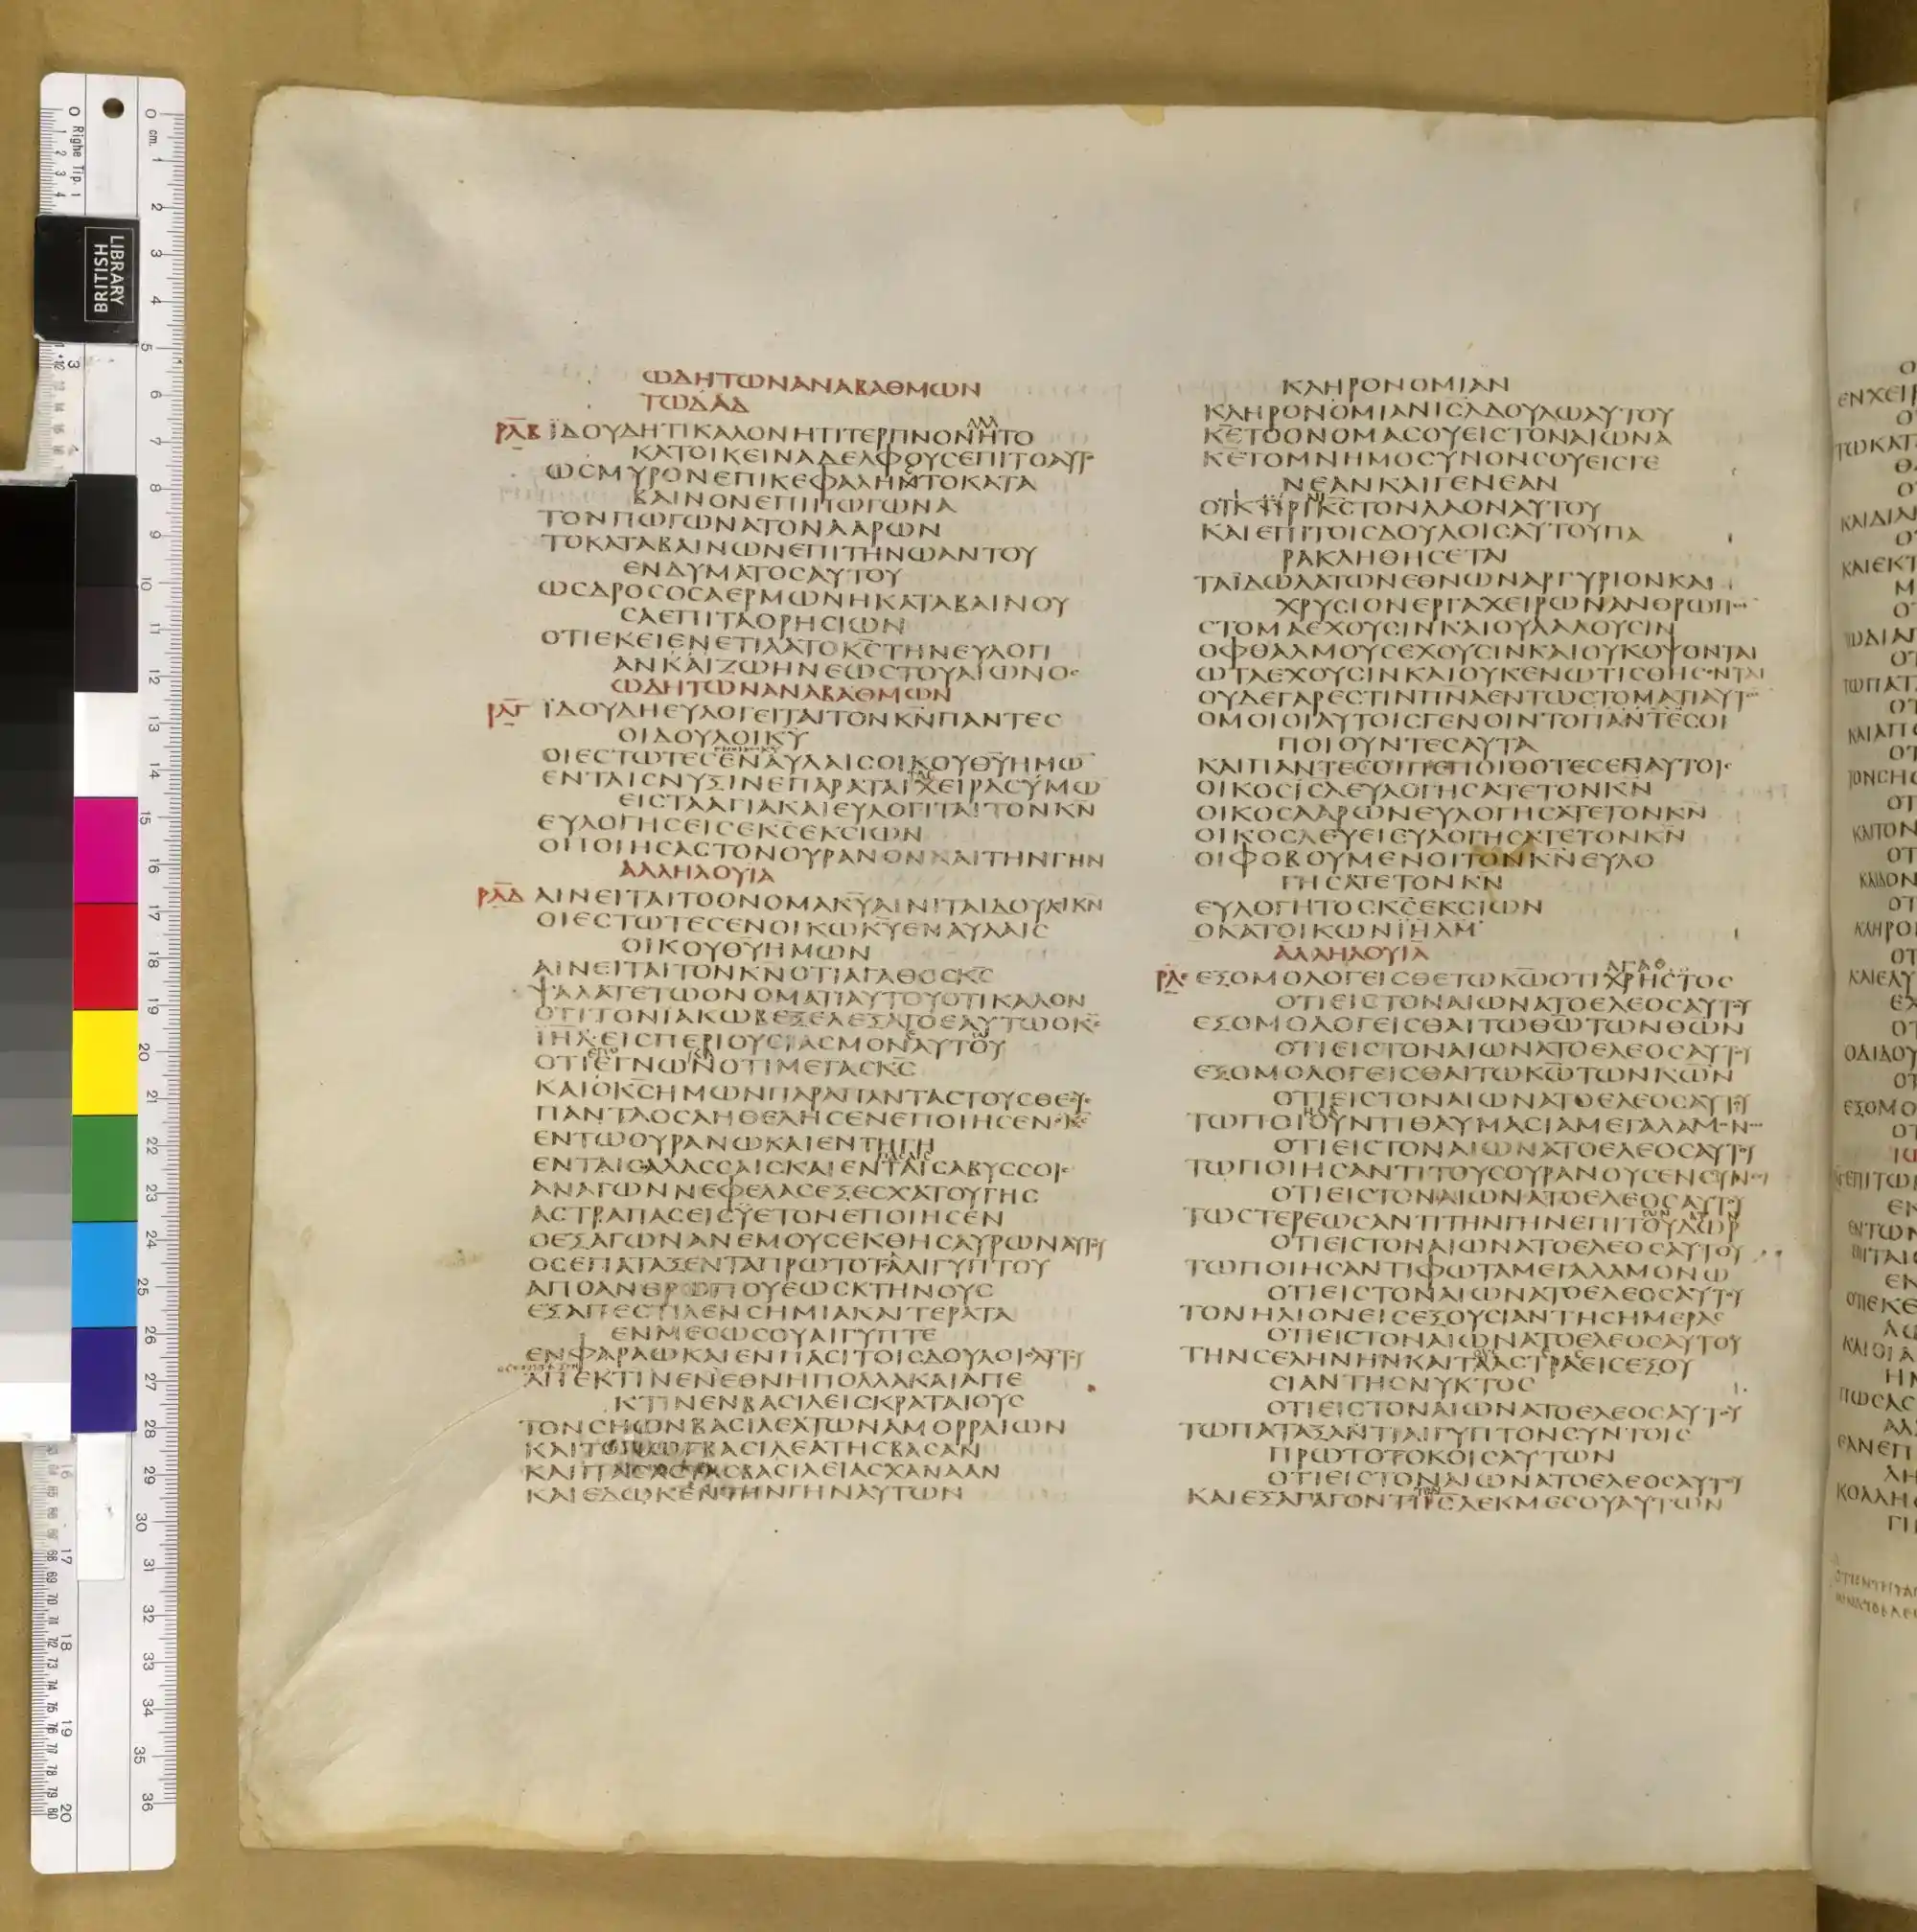 ΩΔΗΤΩΝΑΝΑΒΑΘΜΩΝ
ΤΩΔΑΔ
ΡΛΒ ΪΔΟΥΔΗΤΙΚΑΛΟΝΗΤΙΤΕΡΠΝΟΝΗΤΟ
ΚΑΤΟΙΚΕΙΝΑΔΕΛΦΟΥСΕΠΙΤΟΑΥΤΟ
ΩСΜΥΡΟΝΕΠΙΚΕΦΑΛΗΣΤΟΚΑΤΑ
ΒΑΙΝΟΝΕΠΙΠΩΓΩΝΑ
ΤΟΝΠΩΓΩΝΑΤΟΝΑΑΡΩΝ
ΤΟΚΑΤΑΒΑΙΝΩΝΕΠΙΤΗΝΩΑΝΤΟΥ
ΕΝΔΥΜΑΤΟСΑΥΤΟΥ
ΩСΔΡΟСΟСΑΕΡΜΩΝΗΚΑΤΑΒΑΙΝΟΥ
СΑΕΠΙΤΑΟΡΗСΙΩΝ
ΟΤΙΕΚΕΙΕΝΕΤΙΛΑΤΟΚ̅С̅ΤΗΝΕΥΛΟΓΙ
ΑΝΚΑΙΖΩΗΝΕΩСΤΟΥΑΙΩΝΟС
ΩΔΗΤΩΝΑΝΑΒΑΘΜΩΝ
ΡΛΓ ΪΔΟΥΔΗΕΥΛΟΓΕΙΤΑΙΤΟΝΚ̅Ν̅ΠΑΝΤΕС
ΟΙΔΟΥΛΟΙΚ̅Υ̅
ΟΙΕСΤΩΤΕСΕΝΑΥΛΑΙСΟΙΚΟΥΘ̅Υ̅ΗΜΩ̅
ΕΝΤΑΙСΝΥΞΙΝΕΠΑΡΑΤΑΙΧΕΙΡΑСΥΜΩ̅
ΕΙСΤΑΑΓΙΑΚΑΙΕΥΛΟΓΙΤΑΙΤΟΝΚ̅Ν̅
ΕΥΛΟΓΗСΕΙСΕΚ̅С̅ΕΚСΙΩΝ
ΟΠΟΙΗСΑСΤΟΝΟΥΡΑΝΟΝΚΑΙΤΗΝΓΗΝ
ΑΛΛΗΛΟΥΙΑ
ΡΛΔ ΑΙΝΕΙΤΑΙΤΟΟΝΟΜΑΚ̅Υ̅ΑΙΝΙΤΑΙΔΟΥΛΟΙΚ̅Ν̅
ΟΙΕСΤΩΤΕСΕΝΟΙΚΩΚ̅Υ̅ΕΝΑΥΛΑΙС
ΟΙΚΟΥΘ̅Υ̅ΗΜΩΝ
ΑΙΝΕΙΤΑΙΤΟΝΚ̅Ν̅ΟΤΙΑΓΑΘΟСΚ̅С̅
ΨΑΛΑΤΕΤΩΟΝΟΜΑΤΙΑΥΤΟΥΟΤΙΚΑΛΟΝ
ΟΤΙΤΟΝΙΑΚΩΒΕΞΕΛΕΞΑΤΟΕΑΥΤΩΟΚ̅С̅
Ι̅Η̅Λ̅ΕΙСΠΕΡΙΟΥСΙΑСΜΟΝΑΥΤΟΥ
ΟΤΙΕΓΝΩΝΟΤΙΜΕΓΑСΚ̅С̅
ΚΑΙΟΚ̅С̅ΗΜΩΝΠΑΡΑΠΑΝΤΑСΤΟΥСΘΕΥС
ΠΑΝΤΑΟСΑΗΘΕΛΗСΕΝΕΠΟΙΗСΕΝΟΚ̅С̅
ΕΝΤΩΟΥΡΑΝΩΚΑΙΕΝΤΗΓΗ
ΕΝΤΑΙСΘΑΛΑССΑΙСΚΑΙΕΝΤΑΙСΑΒΥССΟΙС
ΑΝΑΓΩΝΝΕΦΕΛΑСΕΞΕСΧΑΤΟΥΓΗС
ΑСΤΡΑΠΑСΕΙСΥΕΤΟΝΕΠΟΙΗСΕΝ
ΟΕΞΑΓΩΝΑΝΕΜΟΥСΕΚΘΗСΑΥΡΩΝΑΥΤΟΥ
ΟСΕΠΑΤΑΞΕΝΤΑΠΡΩΤΟΤΑΛΙΓΥΠΤΟΥ
ΑΠΟΑΝΘΡΩΠΟΥΕΩСΚΤΗΝΟΥС
ΕΞΑΠΕСΤΙΛΕΝСΗΜΙΑΚΑΙΤΕΡΑΤΑ
ΕΝΜΕСΩСΟΥΑΙΓΥΠΤΕ
ΕΝΦΑΡΑΩΚΑΙΕΝΠΑСΙΤΟΙСΔΟΥΛΟΙСΑΥΤΟΥ
ΑΠΕΚΤΙΝΕΝΕΘΝΗΠΟΛΛΑΚΑΙΑΠΕ
ΚΤΙΝΕΝΒΑСΙΛΕΙСΚΡΑΤΑΙΟΥС
ΤΟΝСΗΩΝΒΑСΙΛΕΑΤΩΝΑΜΟΡΡΑΙΩΝ
ΚΑΙΤΟΝΩΓΒΑСΙΛΕΑΤΗСΒΑСΑΝ
ΚΑΙΠΑСΑСΤΑСΒΑСΙΛΕΙΑСΧΑΝΑΑΝ
ΚΑΙΕΔΩΚΕΝΤΗΝΓΗΝΑΥΤΩΝ
ΚΛΗΡΟΝΟΜΙΑΝ
ΚΛΗΡΟΝΟΜΙΑΝΙ̅С̅Λ̅ΔΟΥΛΩΑΥΤΟΥ
Κ̅Ε̅ΤΟΟΝΟΜΑСΟΥΕΙСΤΟΝΑΙΩΝΑ
Κ̅Ε̅ΤΟΜΝΗΜΟСΥΝΟΝСΟΥΕΙСΓΕ
ΝΕΑΝΚΑΙΓΕΝΕΑΝ
ΟΤΙΚΡΙΝΙΚ̅С̅ΤΟΝΛΑΟΝΑΥΤΟΥ
ΚΑΙΕΠΙΤΟΙСΔΟΥΛΟΙСΑΥΤΟΥΠΑ
ΡΑΚΛΗΘΗСΕΤΑΙ
ΤΑΪΔΩΛΑΤΩΝΕΘΝΩΝΑΡΓΥΡΙΟΝΚΑΙ
ΧΡΥСΙΟΝΕΡΓΑΧΕΙΡΩΝΑΝΘΡΩΠΩΝ
СΤΟΜΑΕΧΟΥСΙΝΚΑΙΟΥΛΑΛΟΥСΙΝ
ΟΦΘΑΛΜΟΥСΕΧΟΥСΙΝΚΑΙΟΥΚΟΨΟΝΤΑΙ
ΩΤΑΕΧΟΥСΙΝΚΑΙΟΥΚΕΝΩΤΙСΘΗСΟΝΤΑΙ
ΟΥΔΕΓΑΡΕСΤΙΝΠΝΑΕΝΤΩСΤΟΜΑΤΙΑΥΤΩΝ
ΟΜΟΙΟΙΑΥΤΟΙСΓΕΝΟΙΝΤΟΠΑΝΤΕСΟΙ
ΠΟΙΟΥΝΤΕСΑΥΤΑ
ΚΑΙΠΑΝΤΕСΟΙΠΕΠΟΙΘΟΤΕСΕΠΑΥΤΟΙС
ΟΙΚΟСΙ̅С̅Λ̅ΕΥΛΟΓΗСΑΤΕΤΟΝΚ̅Ν̅
ΟΙΚΟСΑΑΡΩΝΕΥΛΟΓΗСΑΤΕΤΟΝΚ̅Ν̅
ΟΙΚΟСΛΕΥΕΙΕΥΛΟΓΗСΑΤΕΤΟΝΚ̅Ν̅
ΟΙΦΟΒΟΥΜΕΝΟΙΤΟΝΚ̅Ν̅ΕΥΛΟ
ΓΗСΑΤΕΤΟΝΚ̅Ν̅
ΕΥΛΟΓΗΤΟСΚ̅С̅ΕΚСΙΩΝ
ΟΚΑΤΟΙΚΩΝΙ̅Η̅Λ̅Μ̅
ΑΛΛΗΛΟΥΙΑ
ΡΛΕ ΕΞΟΜΟΛΟΓΕΙСΘΕΤΩΚ̅Ω̅ΟΤΙΧΡΗСΤΟС
ΟΤΙΕΙСΤΟΝΑΙΩΝΑΤΟΕΛΕΟСΑΥΤΟΥ
ΕΞΟΜΟΛΟΓΕΙСΘΑΙΤΩΘ̅Ω̅ΤΩΝΘ̅Ω̅Ν̅
ΟΤΙΕΙСΤΟΝΑΙΩΝΑΤΟΕΛΕΟСΑΥΤΟΥ
ΕΞΟΜΟΛΟΓΕΙСΘΑΙΤΩΚ̅Ω̅ΤΩΝΚ̅Ω̅Ν̅
ΟΤΙΕΙСΤΟΝΑΙΩΝΑΤΟΕΛΕΟСΑΥΤΟΥ
ΤΩΠΟΙΟΥΝΤΙΘΑΥΜΑСΙΑΜΕΓΑΛΑΜΟΝΩ
ΟΤΙΕΙСΤΟΝΑΙΩΝΑΤΟΕΛΕΟСΑΥΤΟΥ
ΤΩΠΟΙΗСΑΝΤΙΤΟΥСΟΥΡΑΝΟΥСΕΝСΥΝ
ΟΤΙΕΙСΤΟΝΑΙΩΝΑΤΟΕΛΕΟСΑΥΤΟΥ
ΤΩСΤΕΡΕΩСΑΝΤΙΤΗΝΓΗΝΕΠΙΤΟΥΔΩΡ
ΟΤΙΕΙСΤΟΝΑΙΩΝΑΤΟΕΛΕΟСΑΥΤΟΥ
ΤΩΠΟΙΗСΑΝΤΙΦΩΤΑΜΕΓΑΛΑΜΟΝΩ
ΟΤΙΕΙСΤΟΝΑΙΩΝΑΤΟΕΛΕΟСΑΥΤΟΥ
ΤΟΝΗΛΙΟΝΕΙСΕΞΟΥСΙΑΝΤΗСΗΜΕΡΑС
ΟΤΙΕΙСΤΟΝΑΙΩΝΑΤΟΕΛΕΟСΑΥΤΟΥ
ΤΗΝСΕΛΗΝΗΝΚΑΙΤΑΑСΤΡΑΕΙСΕΞΟΥ
СΙΑΝΤΗСΝΥΚΤΟС
ΟΤΙΕΙСΤΟΝΑΙΩΝΑΤΟΕΛΕΟСΑΥΤΟΥ
ΤΩΠΑΤΑΞΑΝΤΙΑΙΓΥΠΤΟΝСΥΝΤΟΙС
ΠΡΩΤΟΤΟΚΟΙСΑΥΤΩΝ
ΟΤΙΕΙСΤΟΝΑΙΩΝΑΤΟΕΛΕΟСΑΥΤΟΥ
ΚΑΙΕΞΑΓΑΓΟΝΤΙΙ̅С̅Λ̅ΕΚΜΕСΟΥΑΥΤΩΝ
BRITISH
LIBRARY